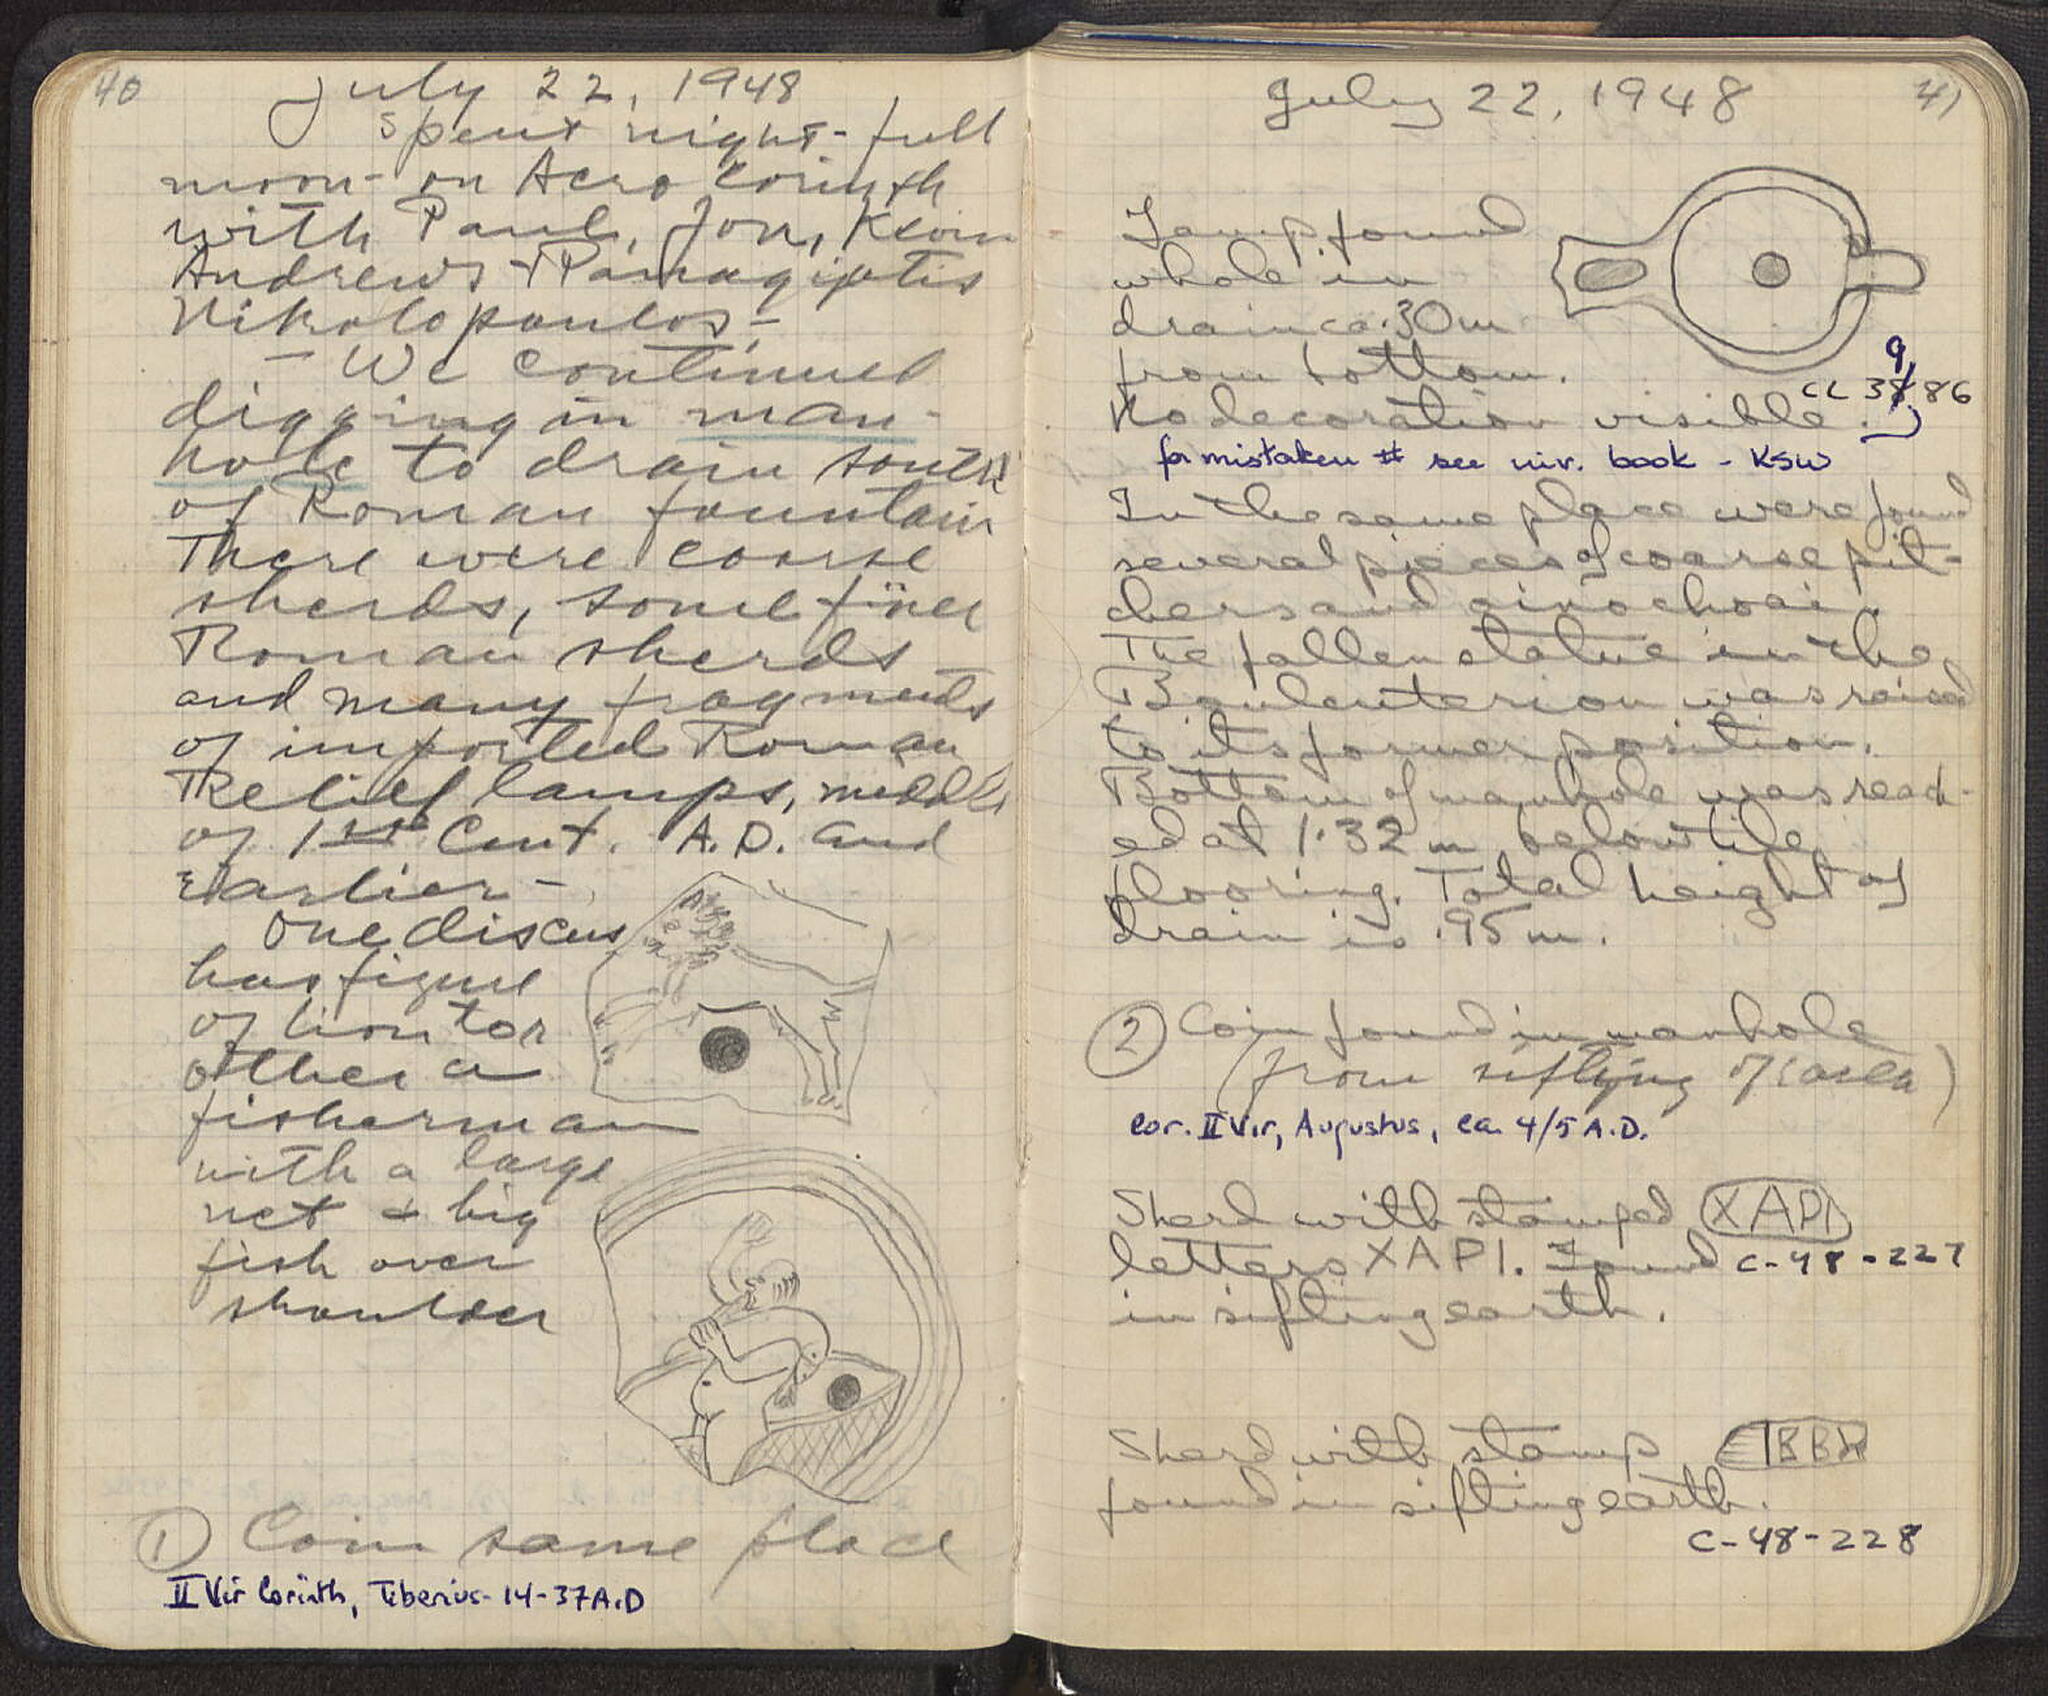 40
July 22, 1948
Spent night - full
moon - on Acro Corinth
with Paul, Jon, Kevin
Andrews + Panagiotis
Nikolopoulos -
- We continued
digging in man-
hole to drain south
of Roman fountain
There were coarse
sherds, some finer
Roman sherds
and many fragments
of imported Roman
Relief lamps, middle
of 1st Cent. A.D. and
Earlier -
One discus
has figure
of lion
other a
fisherman
with a large
net & big
fish over
shoulder
① Coin same place
II Vir Corinth, Tiberius - 14-37 A.D
41
July 22, 1948
Lamp found
whole in
drain ca .30m
from bottom.
9
CL 3886
No decoration visible.
for mistaken # see inv. book - KSW
In the same place were found
several pieces of coarse pit-
chers and oinochoai.
The fallen statue in the
Bouleuterion was raised
to its former position.
Bottom of manhole was reach-
ed at 1.32 m below tile
flooring. Total height of
drain is .95 m.
② Coin found in manhole
(from sifting of earth)
Cor. II Vir, Augustus, ca. 4/5 A.D.
Sherd with stamped XAPI
letters XAPI. Found C-48-227
in sifting earth.
Sherd with stamp
found in sifting earth.
C-48-228